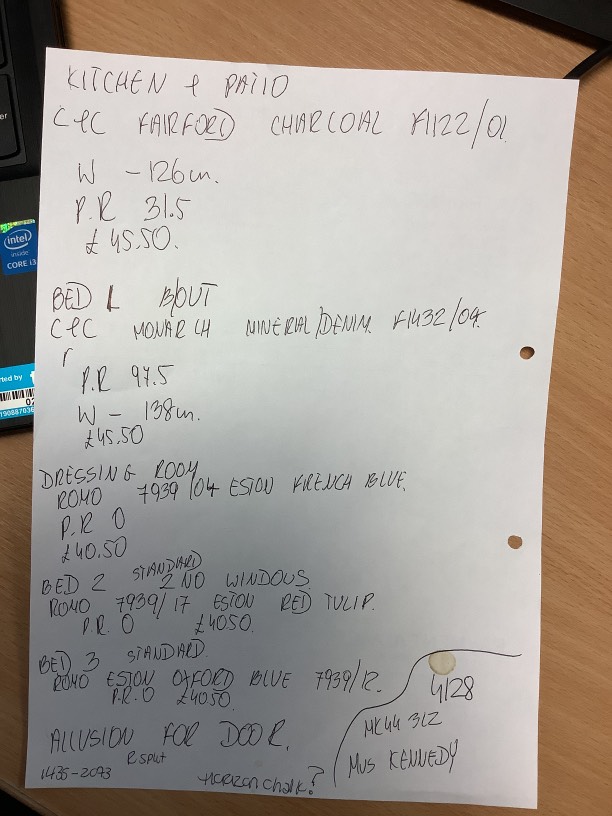 KITCHEN & PATIO
C&C FAIRFORD CHARCOAL F1122/01.
W - 126cm.
P.R 31.5
£45.50.
BED 1 B/OUT
C&C MONARCH MINERAL/DENIM. F1432/04.
P.R 97.5
W - 138cm.
£45.50
DRESSING ROOM
ROMO 7939/04 ESTON FRENCH BLUE.
P.R 0
£40.50
BED 2 STANDARD 2 NO WINDOWS.
ROMO 7939/17 ESTON RED TULIP.
P.R. 0 £4050.
BED 3 STANDARD.
ROMO ESTON OXFORD BLUE 7939/12.
P.R.0 £4050.
ALLUSION FOR DOOR.
R Split
1435-2093
Horizon Chalk?
4128
MK44 3LZ
MUS KENNEDY
intel
inside
CORE i3